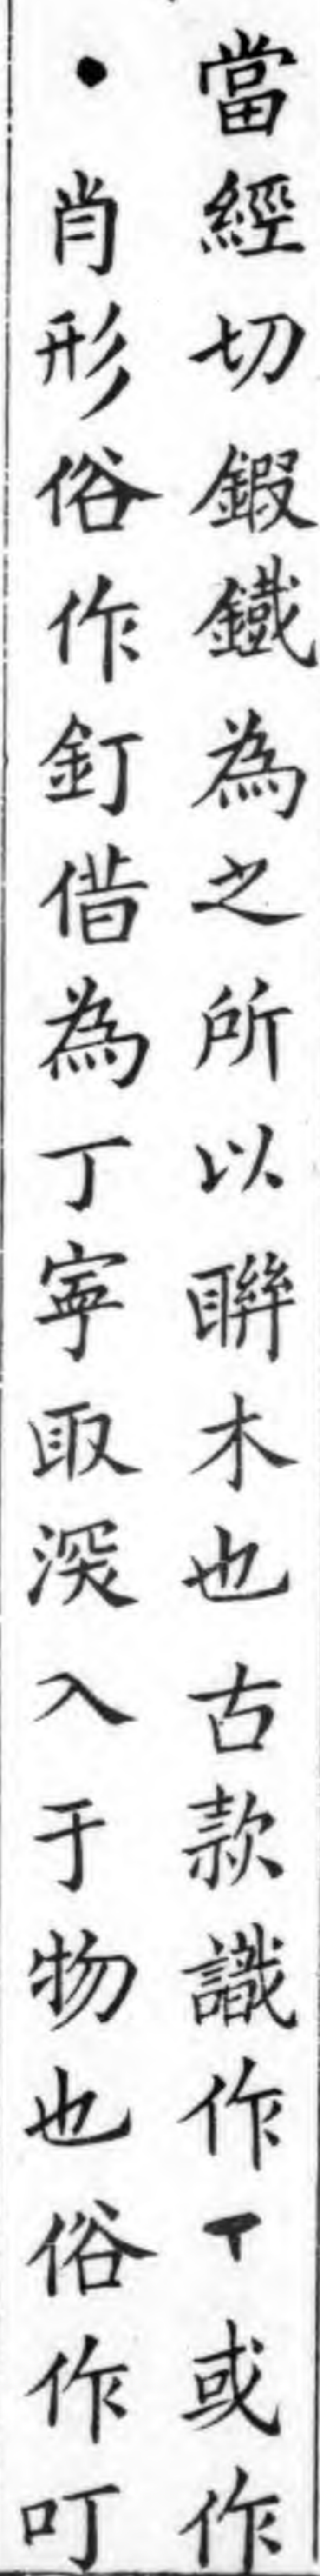 當經切鍜鐵為之所以聨木也古款識作丅或作
●肖形俗作釘借為丁寧取深入于物也俗作叮